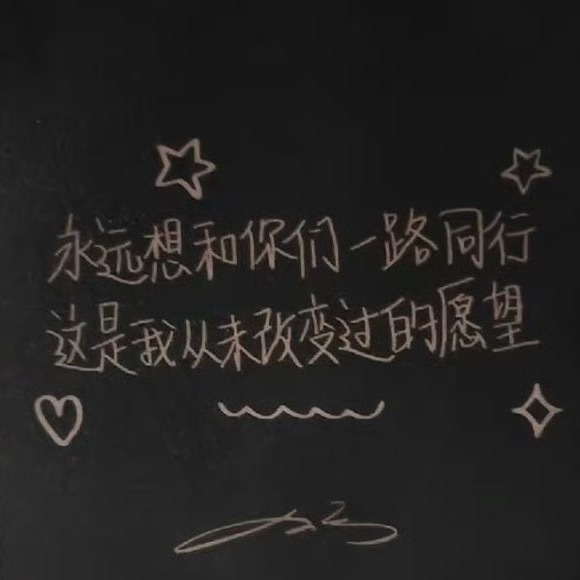 永远想和你们一路同行
这是我从未改变过的愿望